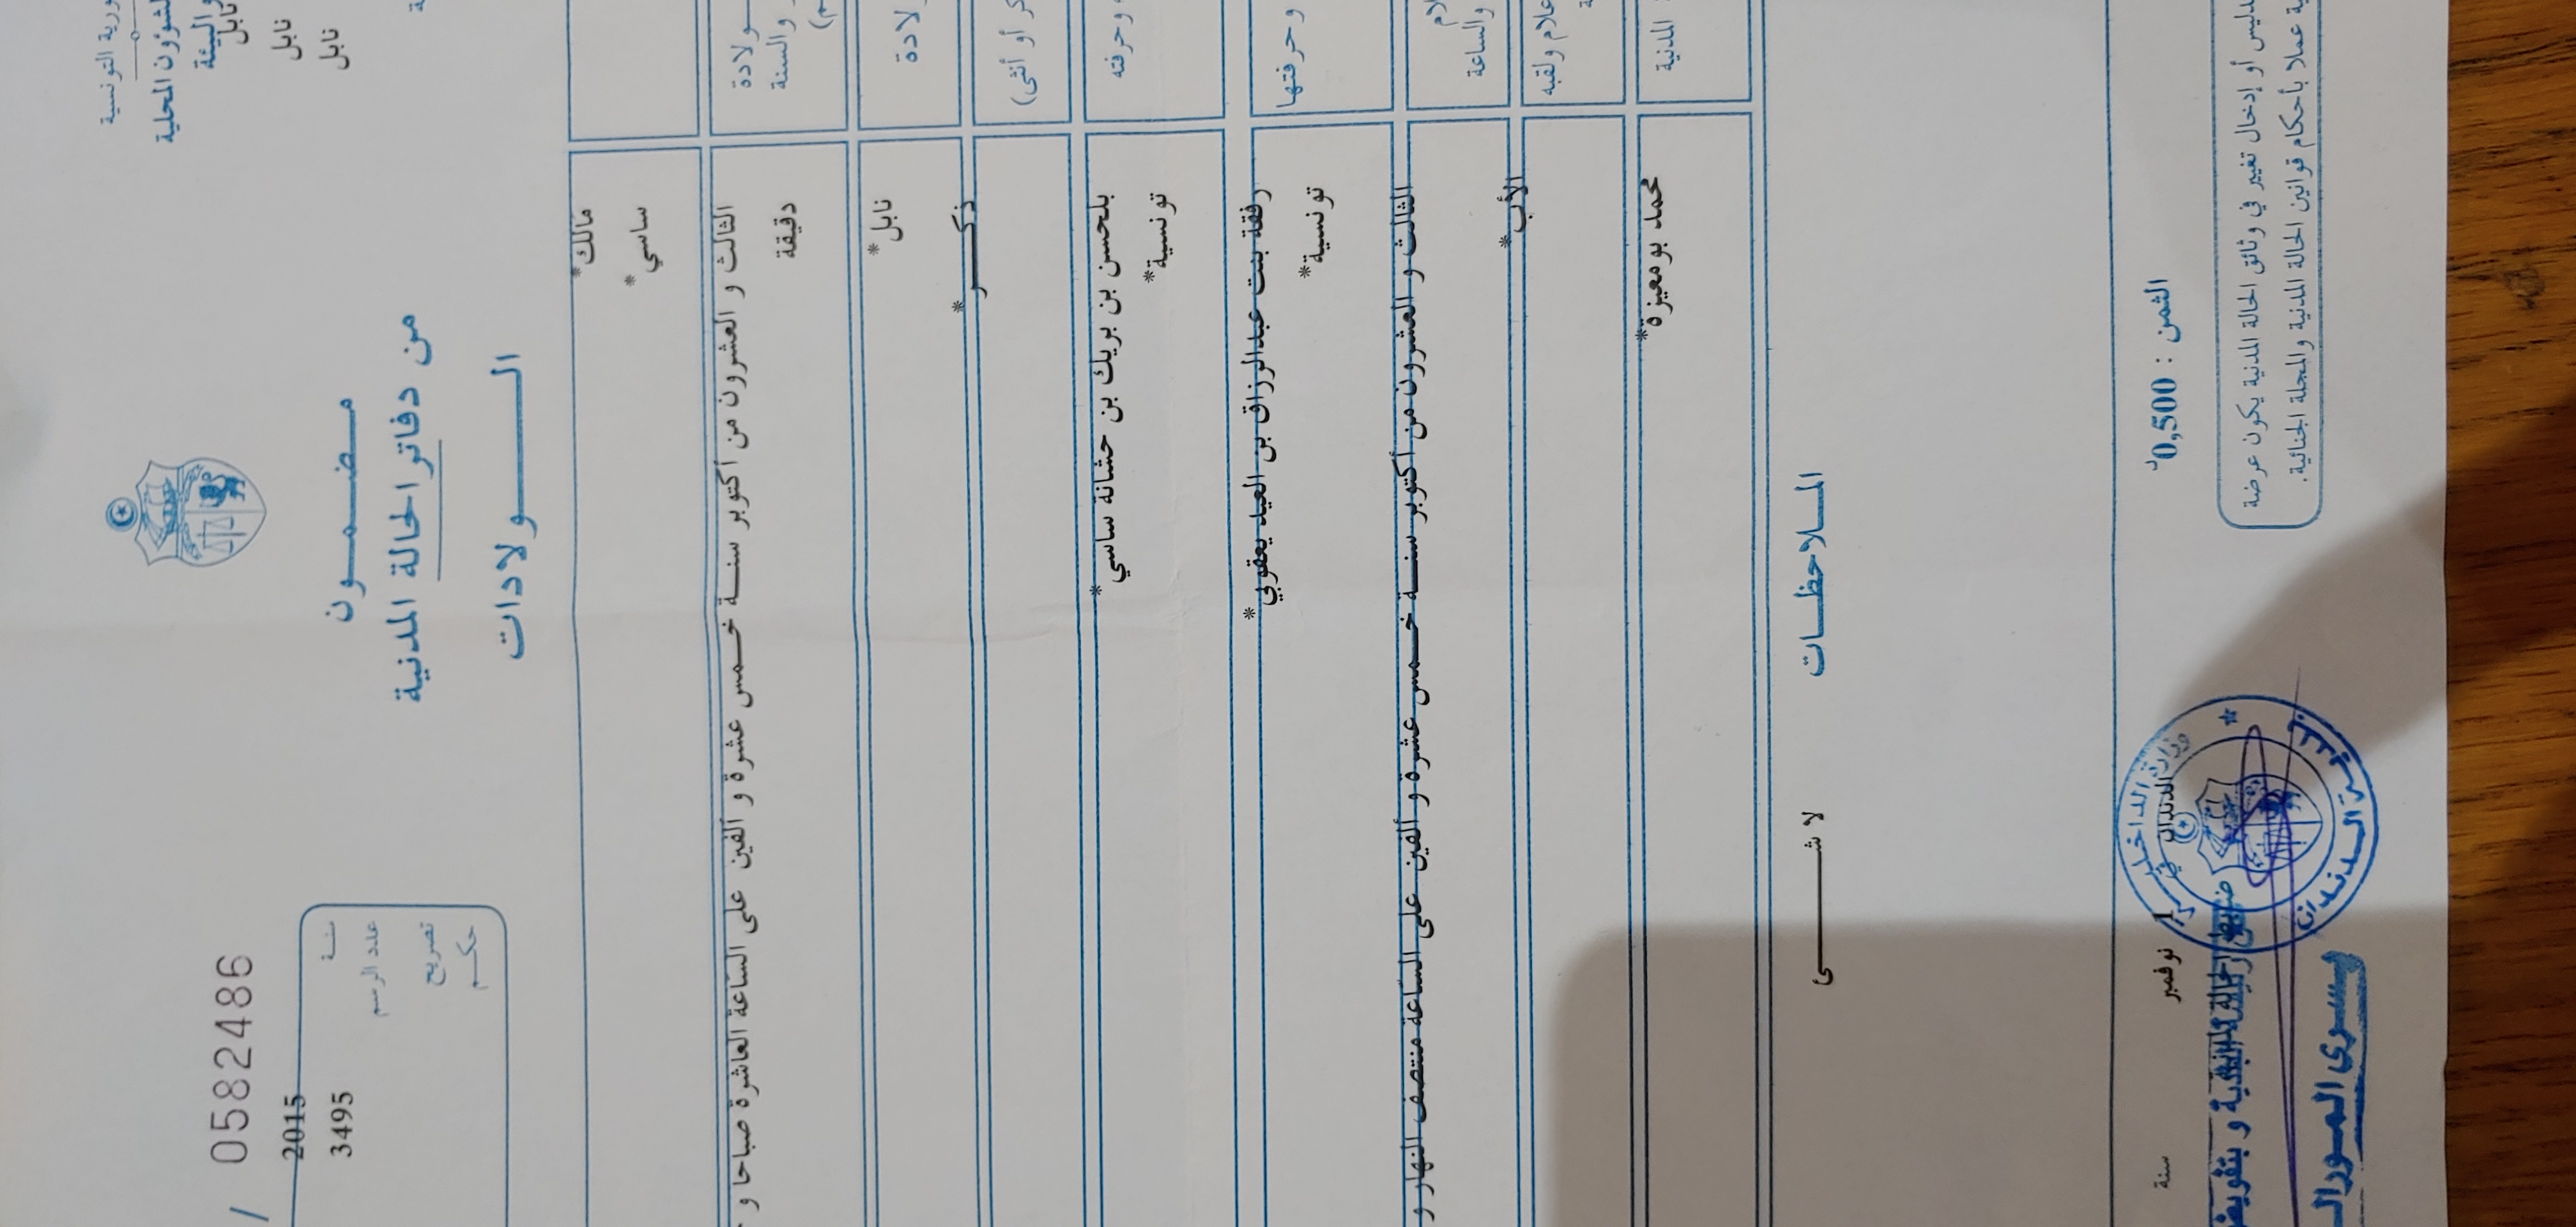 ورية التونسية
لشؤون المحلية
والبيئة
نابل
نابل
نابل
مضمــون
من دفاتر الحالة المدنية
الــولادات
0582486
2015
سنة
3495
عدد الرسم
تصريح
حكم
مالك*
ساسي*
ـولادة
والسنة
الثالث و العشرون من أكتوبر سنة خمس عشرة و ألفين على الساعة العاشرة صباحا و
دقيقة
لادة
نابل*
كر أو أنثى)
ذكر*
وحرفته
بلحسن بن بريك بن حشانة ساسي*
تونسية*
وحرفتها
رفقة بنت عبدالرزاق بن العيد يعقوبي*
تونسية*
لام
والساعة
الثالث و العشرون من أكتوبر سنة خمس عشرة و ألفين على الساعة منتصف النهار و
علام ولقبه
الأب*
المدنية
محمد بو معيزة*
الملاحظات
لا شيء
الثمن : 0,500د
نوفمبر
سنة
دليس أو إدخال تغيير في وثائق الحالة المدنية يكون عرضة
ية عملا بأحكام قوانين الحالة المدنية والمجلة الجنائية.
وزارة الداخلية
الدندان في
ضابط الحالة المدنية و بتفويض
يسرى المورالـ